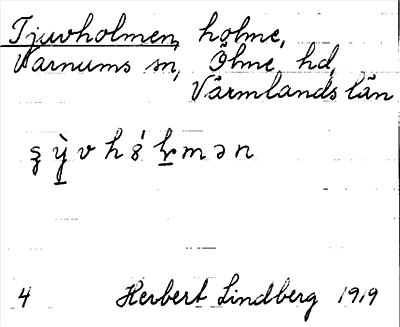 Tjuvholmen, holme,
Varnums sn, Ölme hd,
Värmlands län
4 Herbert Lindberg 1919